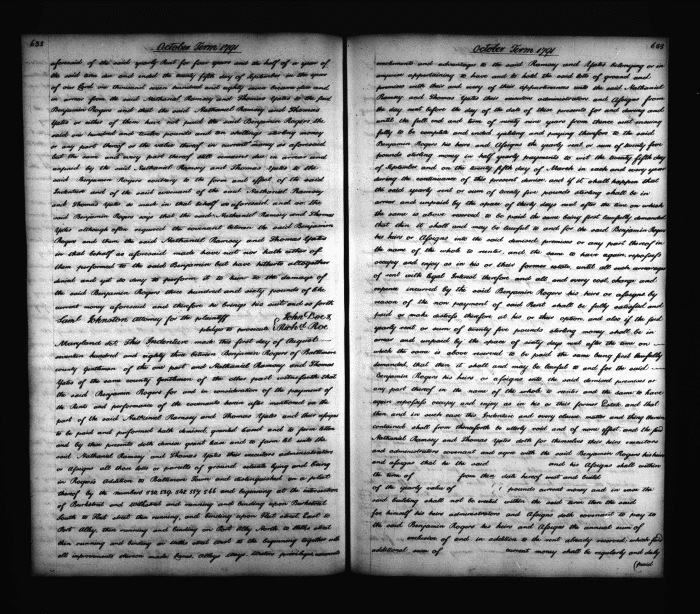 632
October Term 1791
aforesaid of the said yearly Rent for four years and the half of a year of
the said term due and ended the twenty fifth day of September in the year
of our Lord one thousand seven hundred and eighty seven became due and
in arrear from the said Nathaniel Ramsey and Thomas Yates to the said
Benjamin Rogers and that the said Nathaniel Ramsey and Thomas
Yates or either of them have not paid the said Benjamin Rogers the
said one hundred and twelve pounds and ten shillings sterling money
or any part thereof or the value thereof in current money as aforesaid
but the same and every part thereof still remains due in arrear and
unpaid by the said Nathaniel Ramsey and Thomas Yates to the
said Benjamin Rogers contrary to the form and effect of the said
Indenture and of the said covenant of the said Nathaniel Ramsey
and Thomas Yates so made in that behalf as aforesaid and so the
said Benjamin Rogers says that the said Nathaniel Ramsey and Thomas
Yates although after required the covenant between the said Benjamin
Rogers and them the said Nathaniel Ramsey and Thomas Yates
in that behalf as aforesaid made have not nor hath either of
them performed to the said Benjamin but have hitherto altogether
denied and yet do deny to perform it to him to the damage of
the said Benjamin Rogers three hundred and sixty pounds of like
current money aforesaid and therefore he brings his suit and so forth
Saml Johnston Attorney for the plaintiff John Doe &
pledges to prosecute Richd Roe
Maryland sct. This Indenture made this first day of August
seventeen hundred and eighty three between Benjamin Rogers of Baltimore
county Gentleman of the one part and Nathaniel Ramsey and Thomas
Yates of the same county Gentlemen of the other part witnesseth that
the said Benjamin Rogers for and in consideration of the payment of
the Rents and performance of the covenants herein after mentioned on the
part of the said Nathaniel Ramsey and Thomas Yates and their assigns
to be paid and performed hath demised granted leased and to farm letten
and by these presents doth demise grant lease and to farm let unto the
said Nathaniel Ramsey and Thomas Yates their executors administrators
or Assigns all those lots or parcells of ground situate lying and being
in Rogers's Addition to Baltimore Town and distinguished on a platt
thereof by the numbers and beginning at the intersection
of and and running and bounding upon
South to then running and binding upon said street East to
Port Alley, then running and binding on Port Alley North to street
then running and binding on said street to the beginning together with
all improvements thereon made Lanes Alleys Ways Waters privileges
605
October Term 1791
and advantages to the said Ramsey and Yates belonging or in
anywise appertaining to have and to hold the said lots of ground and
premises with their and every of their appurtenances unto the said Nathaniel
Ramsey and Thomas Yates their executors administrators and Assigns from
the day next before the day of the date of these presents for and during and
untill the full end and term of ninety nine years from thence next ensuing
fully to be complete and ended yielding and paying therefore to the said
Benjamin Rogers his heirs and Assigns the yearly rent or sum of twenty five
pounds sterling money in half yearly payments to wit the twenty fifth day
of September and on the twenty fifth day of March in each and every year
during the continuance of this present demise and if it shall happen that
the said yearly rent or sum of twenty five pounds sterling shall be in
arrear and unpaid by the space of thirty days next after the time on which
the same is above reserved to be paid the same being first lawfully demanded
that then it shall and may be lawful to and for the said Benjamin Rogers
his heirs or Assigns into the said demised premises or any part thereof in
the name of the whole to reenter and the same to have again, repossess
occupy and enjoy as in his or their former estate until all such arrearages
of rent with legal Interest therefore and all and every cost, charge and
expence incurred by the said Benjamin Rogers his heirs or assigns by
reason of the non payment of said Rent shall be fully satisfied and
paid or make satisfied therefor at his or their option and also if the said
yearly rent or sum of twenty five pounds sterling money shall be in
arrear and unpaid by the space of sixty days next after the time on
which the same is above reserved to be paid the same being first lawfully
demanded that then it shall and may be lawful to and for the said
Benjamin Rogers his heirs or assigns into the said demised premises or
any part thereof in the name of the whole to reenter and the same to have
again repossess occupy and enjoy as in his or their former Estate and that
then and in such case this Indenture and every clause matter and thing therein
contained shall from thenceforth be utterly void and of none effect and the said
Nathaniel Ramsey and Thomas Yates doth for themselves their heirs executors
and administrators covenant and agree with the said Benjamin Rogers his heirs
and assigns that he the said and his Assigns shall within
the term of from the doth hereof and build
of the yearly value of pounds current money and in case the
said building shall not be within the said term then the said
for himself his heirs administrators and Assigns doth covenant to pay to
the said Benjamin Rogers his heirs and Assigns the annual sum of
exclusive of and in addition to the rent already reserved which said
additional sum of current money shall be regularly and duly
(paid